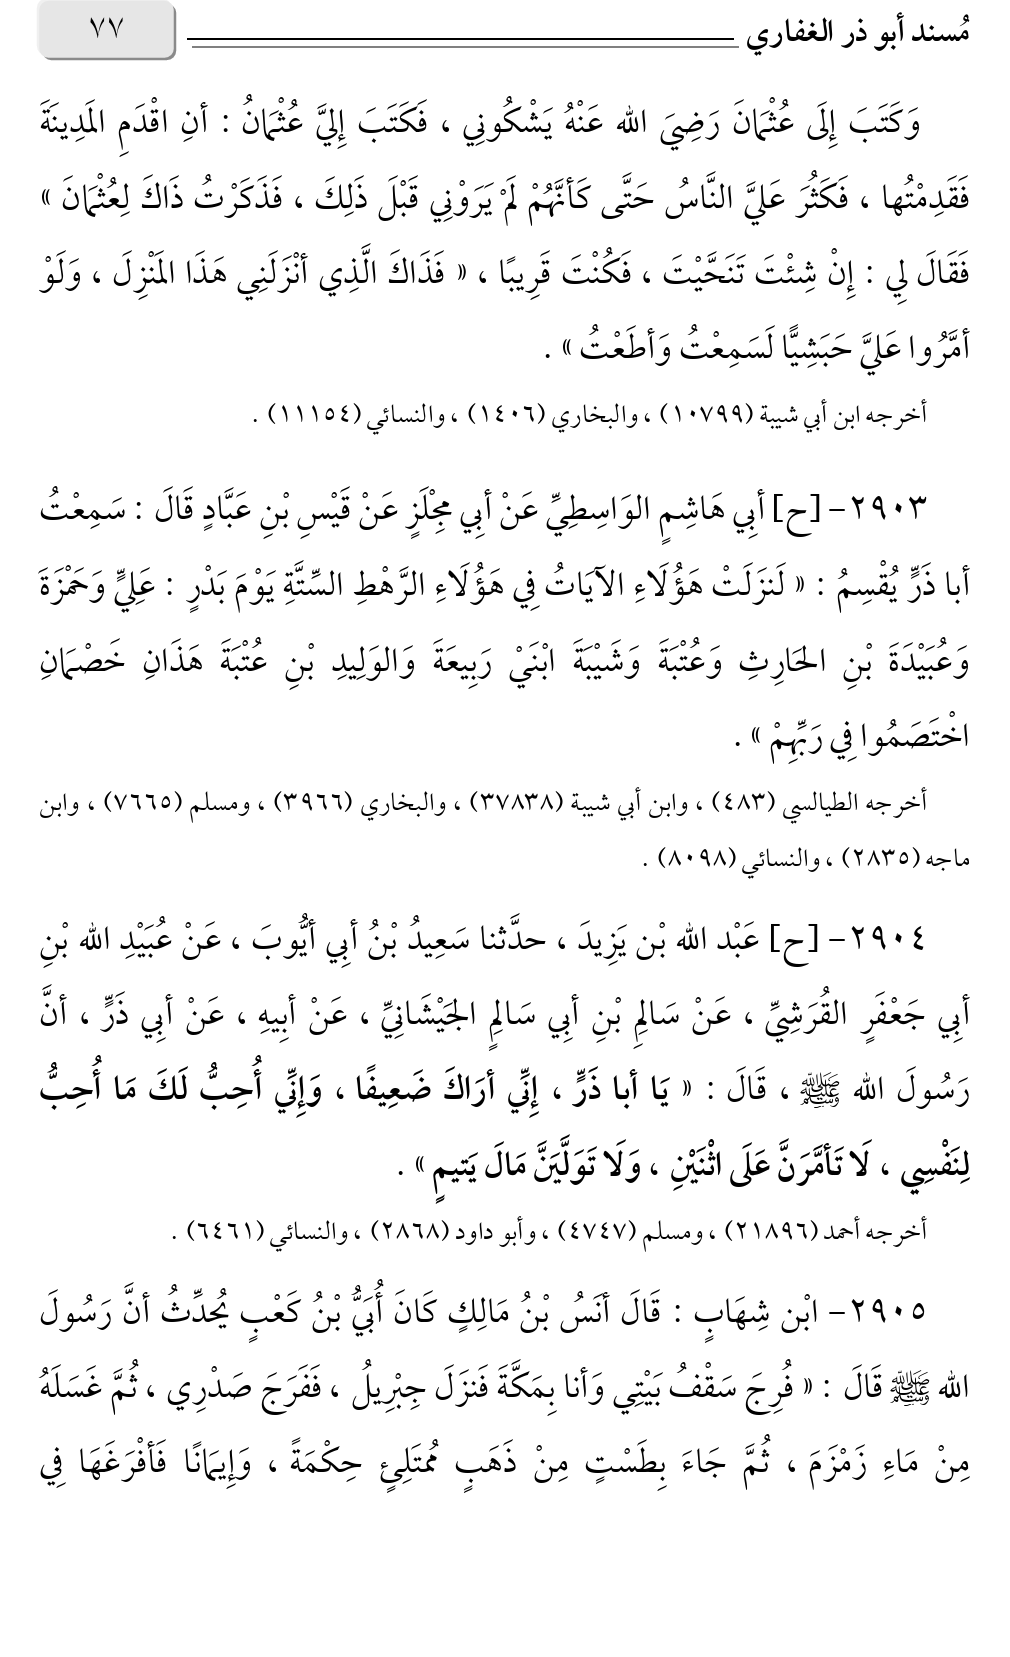 مُسند أبو ذر الغفاري ٧٧
وَكَتَبَ إِلَى عُثْمَانَ رَضِيَ الله عَنْهُ يَشْكُونِي ، فَكَتَبَ إِلَيَّ عُثْمَانُ : أنِ اقْدَمِ المَدِينَةَ
فَقَدِمْتُها ، فَكَثُرَ عَلَيَّ النَّاسُ حَتَّى كَأنَّهُمْ لَمْ يَرَوْنِي قَبْلَ ذَلِكَ ، فَذَكَرْتُ ذَاكَ لِعُثْمَانَ »
فَقَالَ لِي : إِنْ شِئْتَ تَنَحَّيْتَ ، فَكُنْتَ قَرِيبًا ، « فَذَاكَ الَّذِي أنْزَلَنِي هَذَا المَنْزِلَ ، وَلَوْ
أمَّرُوا عَلَيَّ حَبَشِيًّا لَسَمِعْتُ وَأطَعْتُ » .
أخرجه ابن أبي شيبة (١٠٧٩٩) ، والبخاري (١٤٠٦) ، والنسائي (١١١٥٤) .
٢٩٠٣- [ح] أبِي هَاشِمٍ الوَاسِطِيِّ عَنْ أبِي مِجْلَزٍ عَنْ قَيْسِ بْنِ عَبَّادٍ قَالَ : سَمِعْتُ
أبا ذَرٍّ يُقْسِمُ : « لَنزَلَتْ هَؤُلَاءِ الآيَاتُ فِي هَؤُلَاءِ الرَّهْطِ السِّتَّةِ يَوْمَ بَدْرٍ : عَلِيٍّ وَحَمْزَةَ
وَعُبَيْدَةَ بْنِ الحَارِثِ وَعُتْبَةَ وَشَيْبَةَ ابْنَيْ رَبِيعَةَ وَالوَلِيدِ بْنِ عُتْبَةَ هَذَانِ خَصْمَانِ
اخْتَصَمُوا فِي رَبِّهِمْ » .
أخرجه الطيالسي (٤٨٣) ، وابن أبي شيبة (٣٧٨٣٨) ، والبخاري (٣٩٦٦) ، ومسلم (٧٦٦٥) ، وابن
ماجه (٢٨٣٥) ، والنسائي (٨٠٩٨) .
٢٩٠٤- [ح] عَبْد الله بْن يَزِيدَ ، حدَّثنا سَعِيدُ بْنُ أبِي أيُّوبَ ، عَنْ عُبَيْدِ الله بْنِ
أبِي جَعْفَرٍ القُرَشِيِّ ، عَنْ سَالِمِ بْنِ أبِي سَالِمٍ الجَيْشَانِيِّ ، عَنْ أبِيهِ ، عَنْ أبِي ذَرٍّ ، أنَّ
رَسُولَ الله ﷺ ، قَالَ : « يَا أبا ذَرٍّ ، إِنِّي أرَاكَ ضَعِيفًا ، وَإِنِّي أُحِبُّ لَكَ مَا أُحِبُّ
لِنَفْسِي ، لَا تَأمَّرَنَّ عَلَى اثْنَيْنِ ، وَلَا تَوَلَّيَنَّ مَالَ يَتيمٍ » .
أخرجه أحمد (٢١٨٩٦) ، ومسلم (٤٧٤٧) ، وأبو داود (٢٨٦٨) ، والنسائي (٦٤٦١) .
٢٩٠٥- ابْن شِهَابٍ : قَالَ أنَسُ بْنُ مَالِكٍ كَانَ أُبَيُّ بْنُ كَعْبٍ يُحدِّثُ أنَّ رَسُولَ
الله ﷺ قَالَ : « فُرِجَ سَقْفُ بَيْتِي وَأنا بِمَكَّةَ فَنزَلَ جِبْرِيلُ ، فَفَرَجَ صَدْرِي ، ثُمَّ غَسَلَهُ
مِنْ مَاءِ زَمْزَمَ ، ثُمَّ جَاءَ بِطَسْتٍ مِنْ ذَهَبٍ مُمتَلِئٍ حِكْمَةً ، وَإِيمَانًا فَأفْرَغَهَا فِي